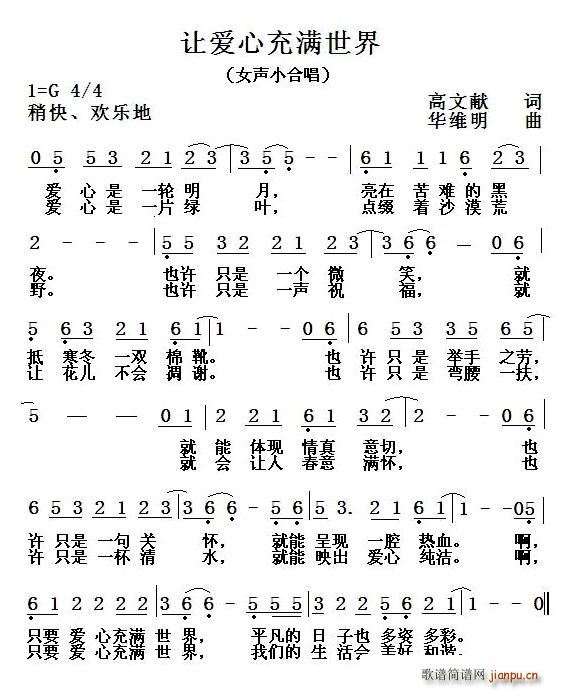 让爱心充满世界
(女声小合唱)
1=G 4/4
高文献 词
稍快、欢乐地
华维明 曲
0 5 53 21 23 3 5 5 - - 6 1 11 6 23
爱心是一轮明月，亮在苦难的黑
爱心是一片绿叶，点缀着沙漠荒
2 - - - 55 32 21 23 3 6 6 - - 0 6
夜。也许只是一个微笑，就
野。也许只是一声祝福，就
5 63 21 61 1 - - 06 53 35 65
抵寒冬一双棉靴。也许只是举手之劳，
让花儿不会凋谢。也许只是弯腰一扶，
5 — — 01 2 21 61 32 2 - - 06
就能体现情真意切，也
就会让人春意满怀，也
6 53 21 23 3 6 6 - 65 53. 21 61 1 - - 05
许只是一句关怀，就能呈现一腔热血。啊，
许只是一杯清水，就能映出爱心纯洁。啊，
61 22 22 3 6 6 - 5 55 3 21 65 61 1 - 0
只要爱心充满世界，平凡的日子也多姿多彩。
只要爱心充满世界，我们的生活会美好和谐。
歌谱简谱网
jianpu.cn